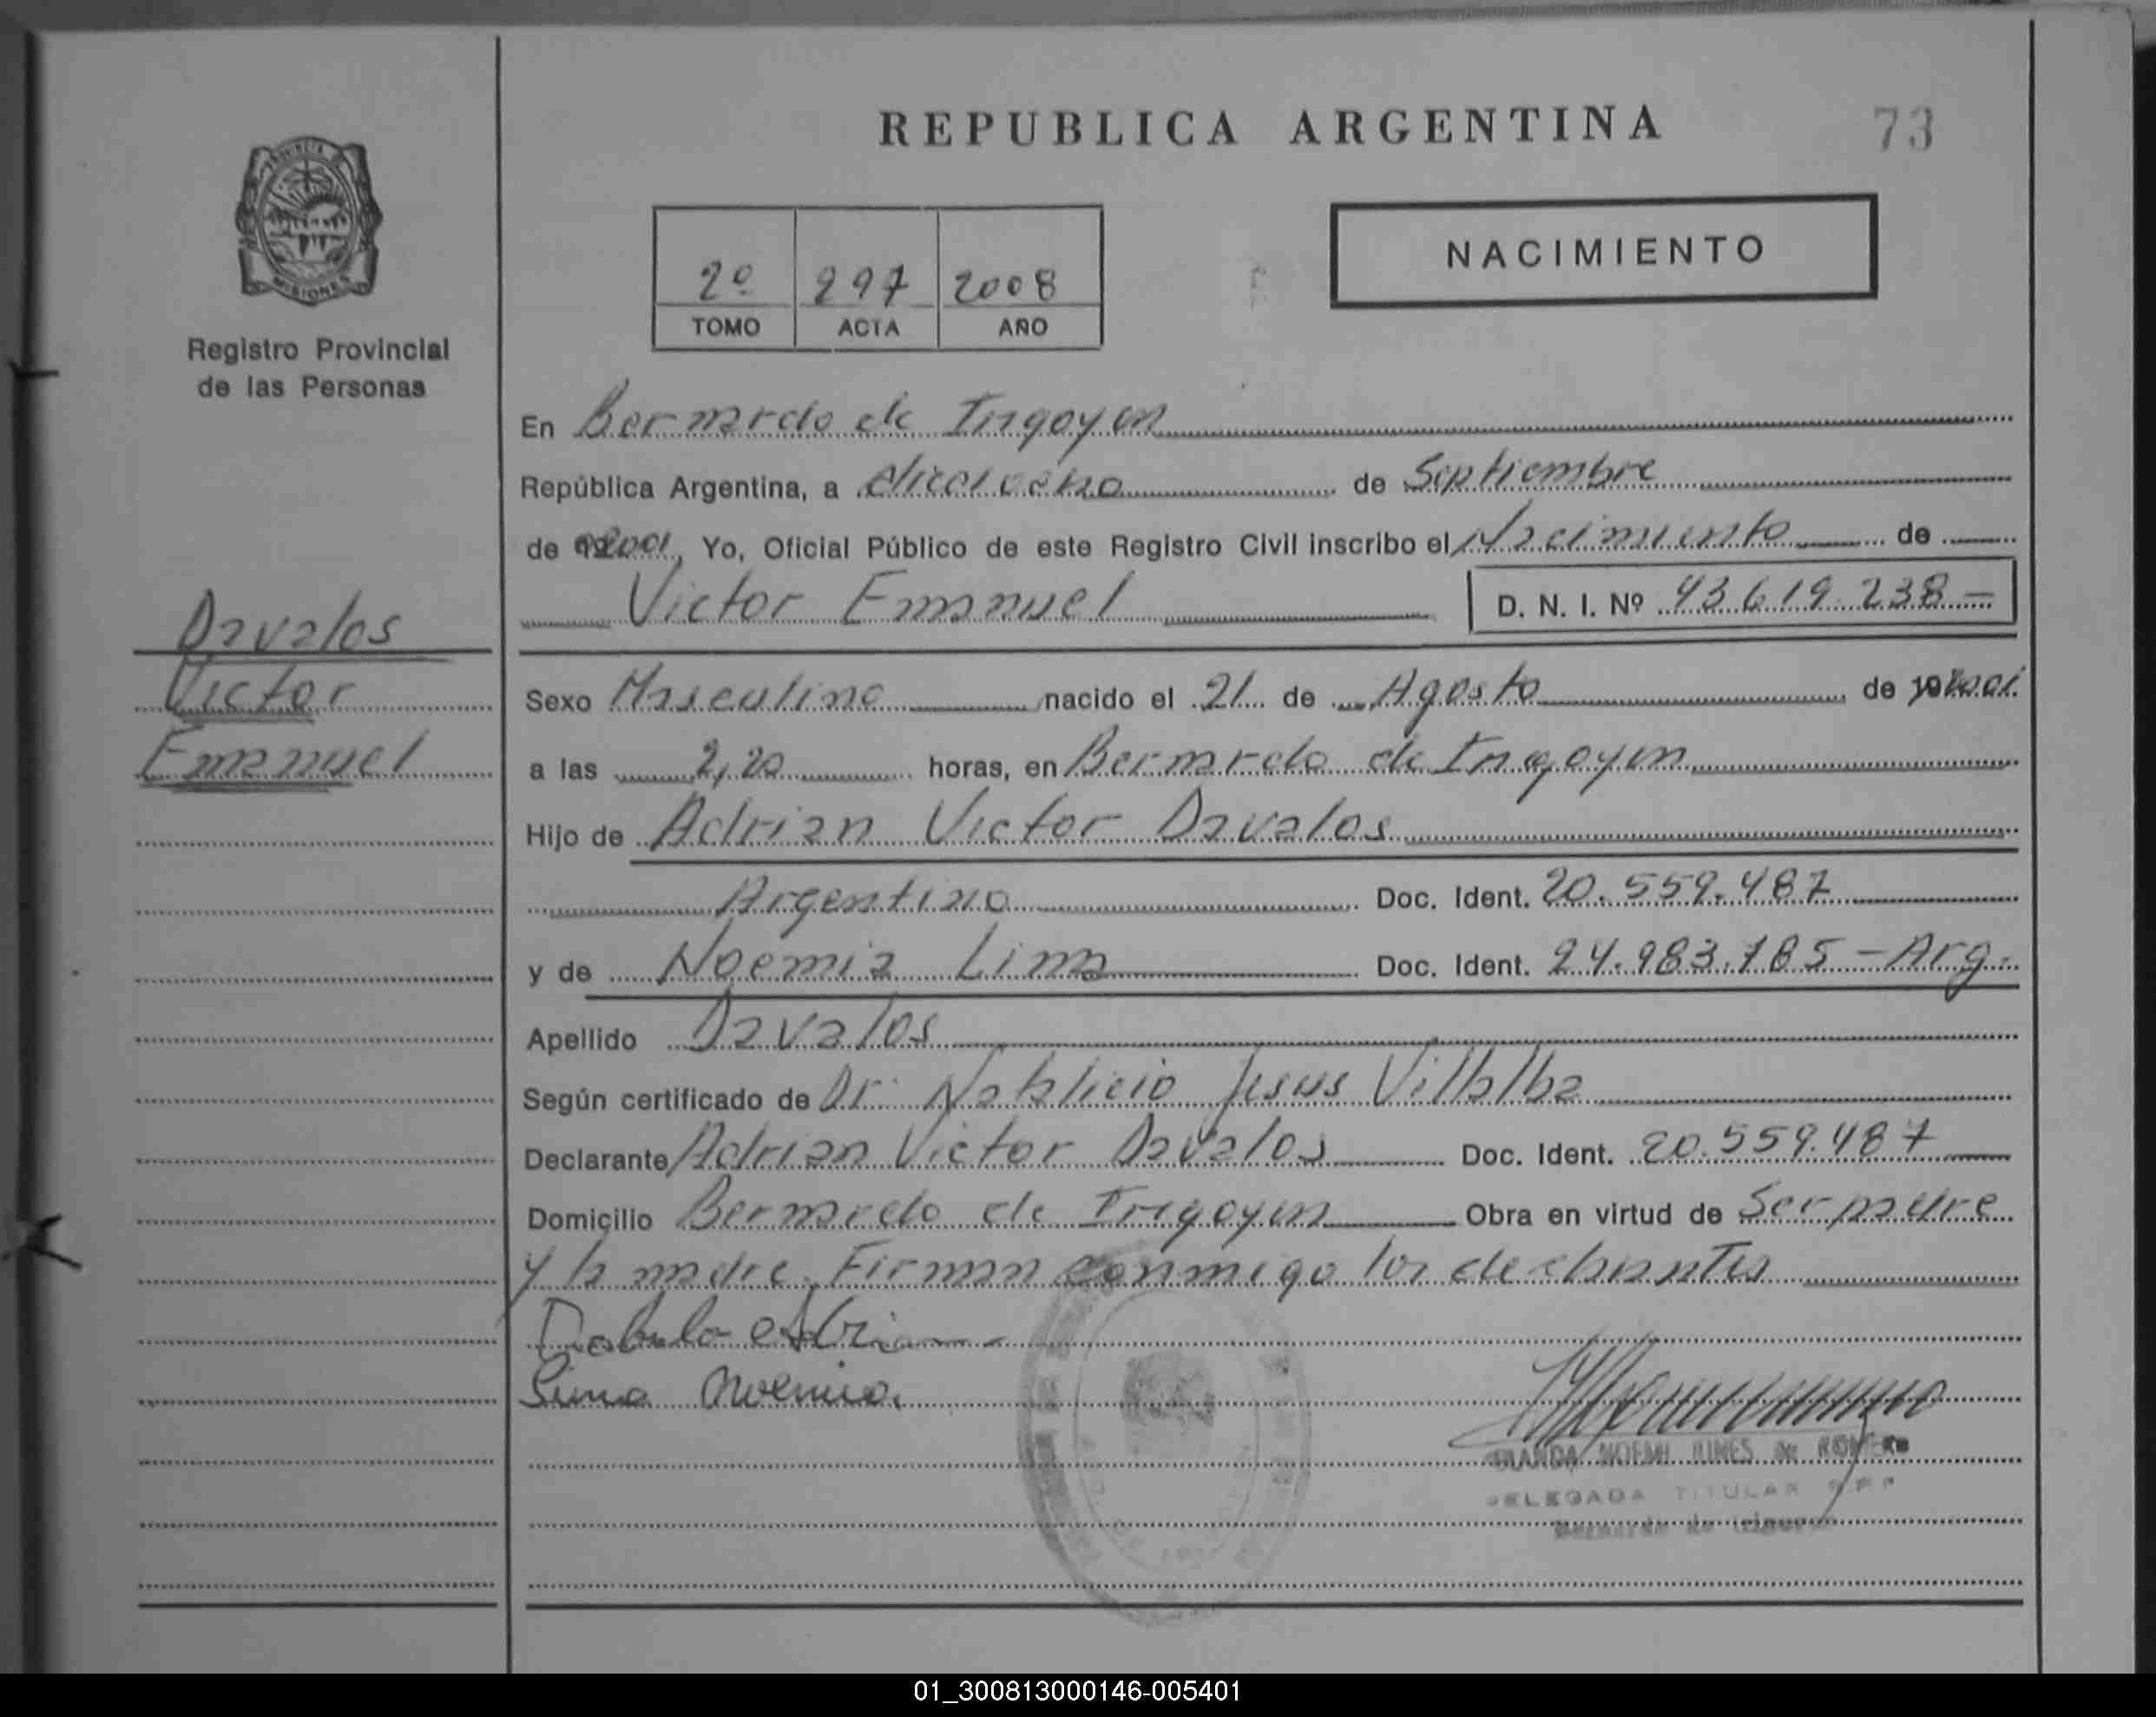 REPUBLICA ARGENTINA
73
PROVINCIA DE
MISIONES
Registro Provincial
de las Personas
2º 297 2008
TOMO ACTA AÑO
NACIMIENTO
En Bernardo de Irigoyen
República Argentina, a dieciocho de Septiembre
de 2001, Yo, Oficial Público de este Registro Civil inscribo el Nacimiento de
Victor Emanuel D. N. I. Nº 43.619.238-
Davalos
Victor
Emanuel
Sexo Masculino nacido el 21 de Agosto de 2001
a las 2,20 horas, en Bernardo de Irigoyen
Hijo de Adrian Victor Davalos
Argentino Doc. Ident. 20.559.487
y de Noemia Lima Doc. Ident. 24.983.185 - Arg.
Apellido Davalos
Según certificado de Dr. Natalicio Jesus Villalba
Declarante Adrian Victor Davalos Doc. Ident. 20.559.487
Domicilio Bernardo de Irigoyen Obra en virtud de Ser padre
y la madre. Firman conmigo los declarantes
Lima Noemia
NOEMI de ROMERO
DELEGADA TITULAR
Bernardo de Irigoyen
01_300813000146-005401